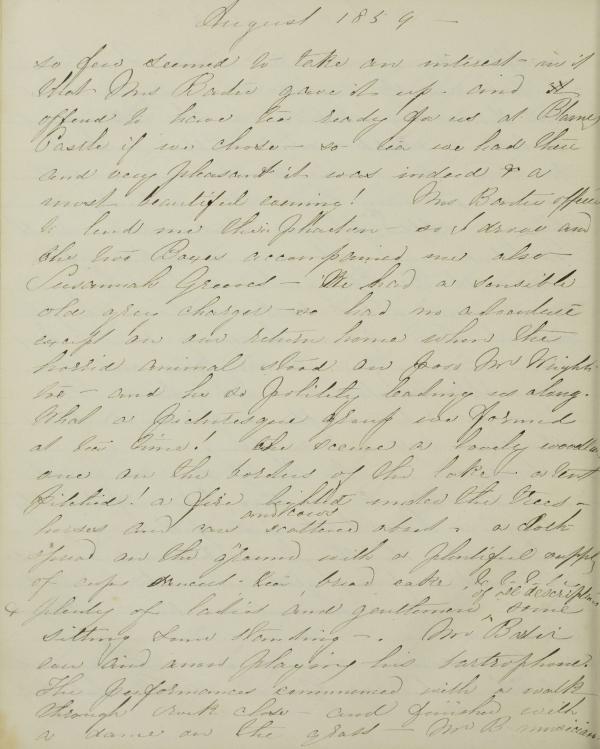 August 1859 —
so few seemed to take an interest in it
that Mrs Baxter gave it up - and
offered to have tea ready for us at Blarney
Castle if we chose - so tea we had there
and very pleasant it was indeed & a
most beautiful evening! Mrs Baxter offered
to lend me their phaeton - so I drove and
the two Boxes accompanied me also
Susannah Greeves - We had a sensible
old grey charger - so had no adventure
except on our return home when the
horrid animal stood on poor Mr Wright's
toe - and he so politely leading us along.
What a picturesque group we formed
at tea time! the scene a lovely woodland
one on the borders of the lake - a tent
pitched! a fire lighted under the trees -
horses and cars and cows scattered about - a cloth
spread on the ground with a plentiful supply
of cups saucers tea, bread cake &c &c &c
& plenty of ladies and gentlemen of all descriptions some
sitting some standing - . Mr Baxter
now and anon playing his
The performances commenced with a walk
through rock close - and finished with
a dance on the grass - Mr B musician